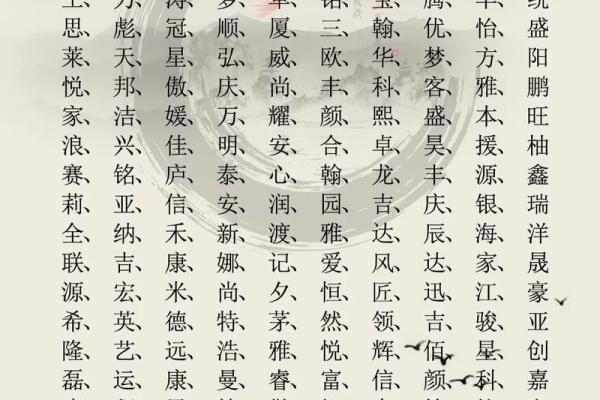 思、彪、冠、顺、厦、三、翰、优、怡、盛
莱、天、星、弘、威、欧、华、梦、方、阳
悦、邦、傲、庆、尚、丰、科、客、雅、鹏
家、洁、媛、万、耀、颜、熙、盛、本、旺
浪、兴、佳、明、安、合、卓、昊、援、柚
赛、铭、庐、泰、心、翰、龙、丰、源、鑫
莉、亚、信、安、润、园、吉、庆、银、瑞
全、纳、禾、新、渡、雅、达、辰、海、洋
联、吉、康、娜、记、爱、风、达、家、晟
源、宏、米、尚、夕、恒、匠、迅、江、豪
希、英、德、特、茅、然、领、吉、骏、亚
隆、艺、远、浩、雅、悦、辉、佰、星、创
磊、运、康、曼、睿、富、信、颜、科、嘉